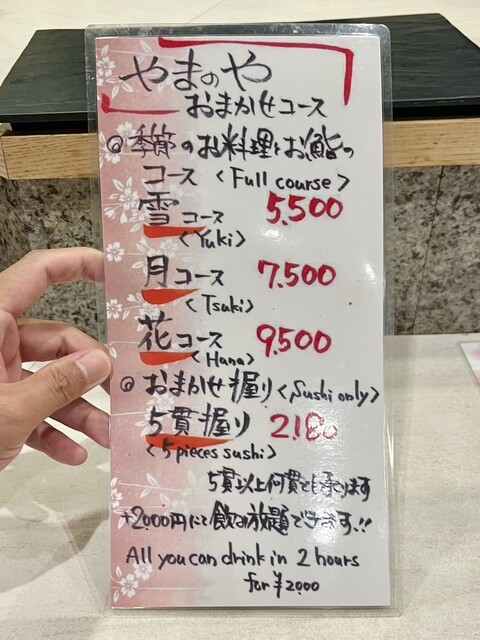 やまのや
おまかせコース
◎季節のお料理とお鮨の
コース <Full course>
雪コース 5,500
<Yuki>
月コース 7,500
<Tsuki>
花コース 9,500
<Hana>
◎おまかせ握り<Sushi only>
5貫握り 2180
<5 pieces sushi>
5貫以上何貫でも承ります
+2,000円にて飲み放題できます!!
All you can drink in 2 hours
for ¥2000